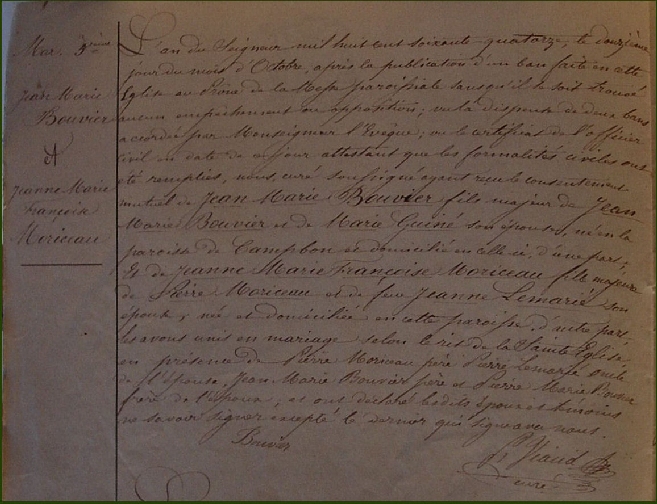 Mar. 3ème
Jean Marie
Bouvier
et
Jeanne Marie
Françoise
Moriceau
L'an du Seigneur mil huit cent soixante quatorze, le douzième
jour du mois d'Octobre, après la publication d'un ban faite en cette
Eglise au Prône de la Messe paroissiale sans qu'il se soit trouvé
aucun empêchement ou opposition; vu la dispense de deux bans
accordée par Monseigneur l'Evêque; vu le certificat de l'officier
civil en date de ce jour attestant que les formalités civiles ont
été remplies, nous, curé soussigné ayant reçu le consentement
mutuel de Jean Marie Bouvier fils majeur de Jean
Marie Bouvier et de Marie Guiné son épouse, né en la
paroisse de Campbon et domicilié en celle-ci, d'une part;
Et de Jeanne Marie Françoise Moriceau fille majeure
de Pierre Moriceau et de feu Jeanne Lemarié son
épouse, née et domiciliée en cette paroisse, d'autre part,
les avons unis en mariage selon le rit de la Sainte Eglise
en présence de Pierre Moriceau père Pierre Lemarié oncle
de l'épouse, Jean Marie Bouvier père et Pierre Marie Bouvier
frère de l'époux; et ont déclaré les dits époux et témoins
ne savoir signer excepté le dernier qui signe avec nous.
Bouvier
Viaud
curé